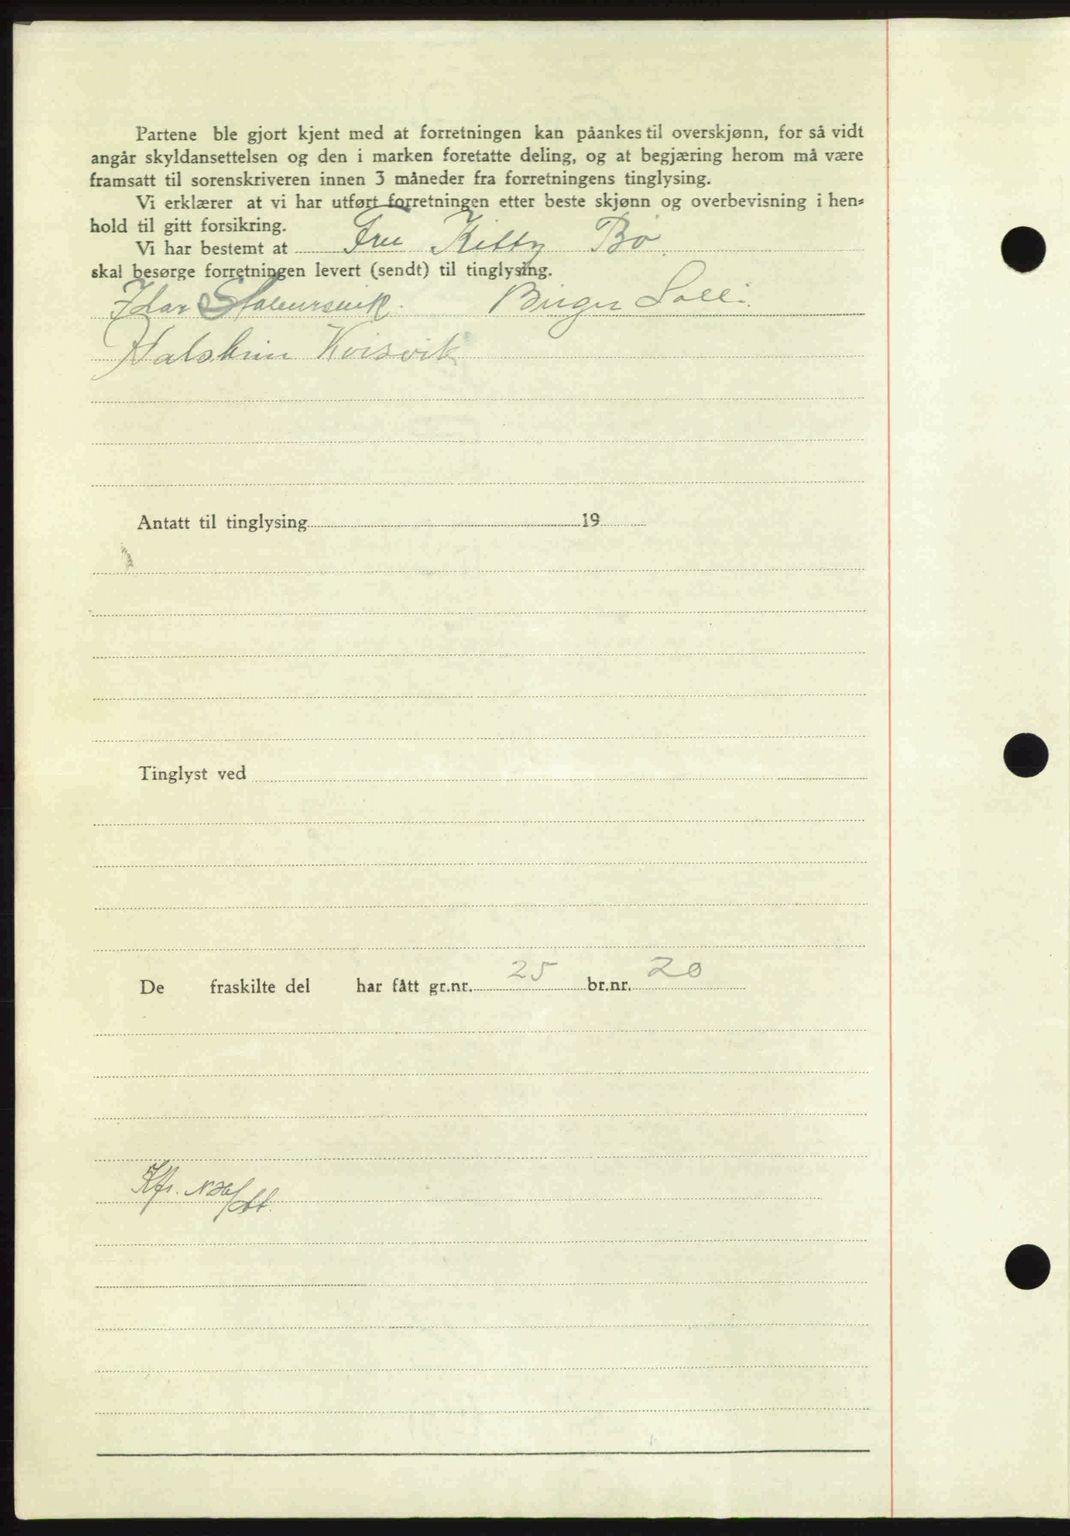 Partene ble gjort kjent med at forretningen kan påankes til overskjønn, for så vidt
angår skyldansettelsen og den i marken foretatte deling, og at begjæring herom må være
framsatt til sorenskriveren innen 3 måneder fra forretningens tinglysing.
Vi erklærer at vi har utført forretningen etter beste skjønn og overbevisning i hen=
hold til gitt forsikring.
Vi har bestemt at Fru Kitty Bø
skal besørge forretningen levert (sendt) til tinglysing.
Idar Birger Solli.
Kvisvik
Antatt til tinglysing 19
Tinglyst ved
De fraskilte del har fått gr.nr. 25 br.nr. 20
Kfr.